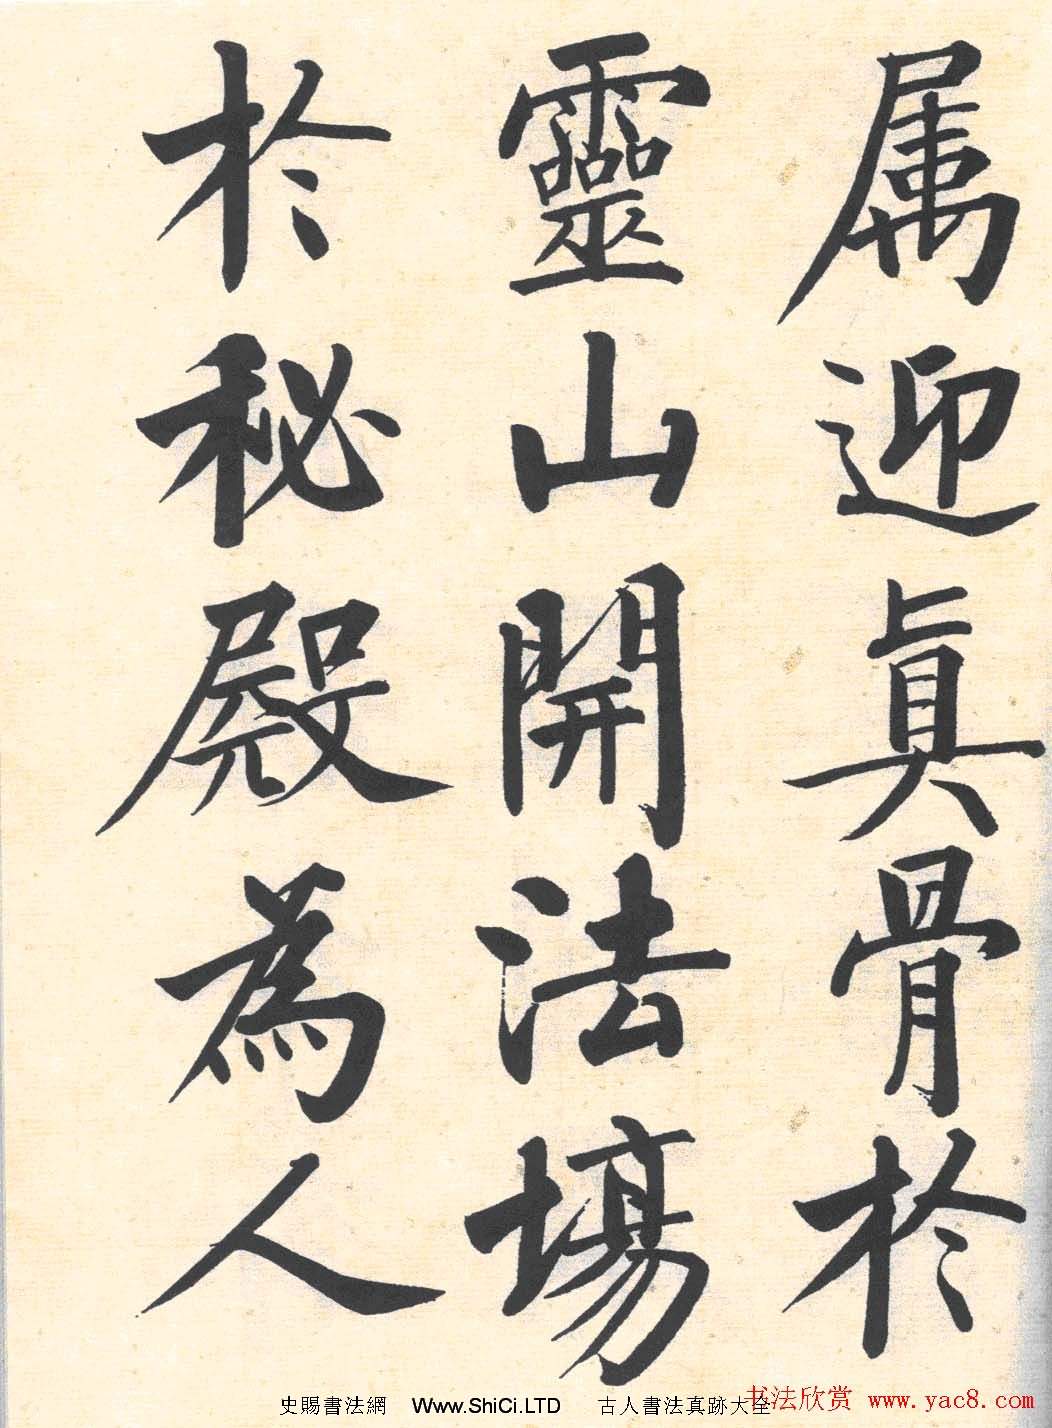 属迎真骨於
靈山開法場
於秘殿為人
史賜書法網 Www.ShiCi.LTD 古人書法真跡大全
书法欣赏 www.yac8.com